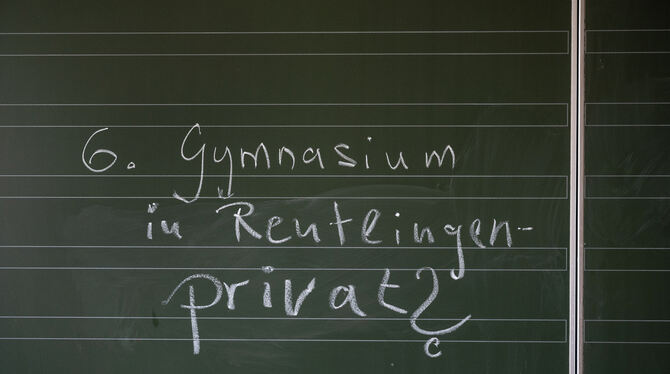 6. Gymnasium
in Reutlingen-
privat?